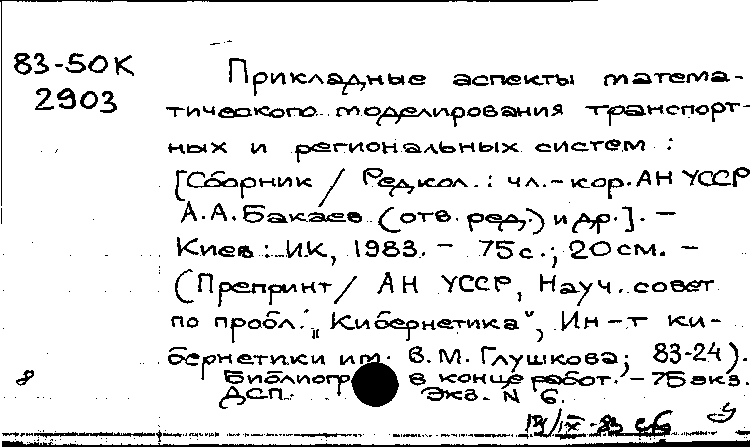 83-50К
2903
Прикладные аспекты матема-
тического моделирования транспорт-
ных и региональных систем :
[Сборник / Редкол. : чл.-кор. АН УССР
А.А. Бакаев (отв. ред.) и др.]. –
Киев : ИК, 1983. – 75 с.; 20 см. –
(Препринт / АН УССР, Науч. совет
по пробл. „Кибернетика", Ин-т ки-
бернетики им. В.М. Глушкова; 83-24).
Библиогр в конце работ. – 75 экз.
8
ДСП. Экз. N 6.